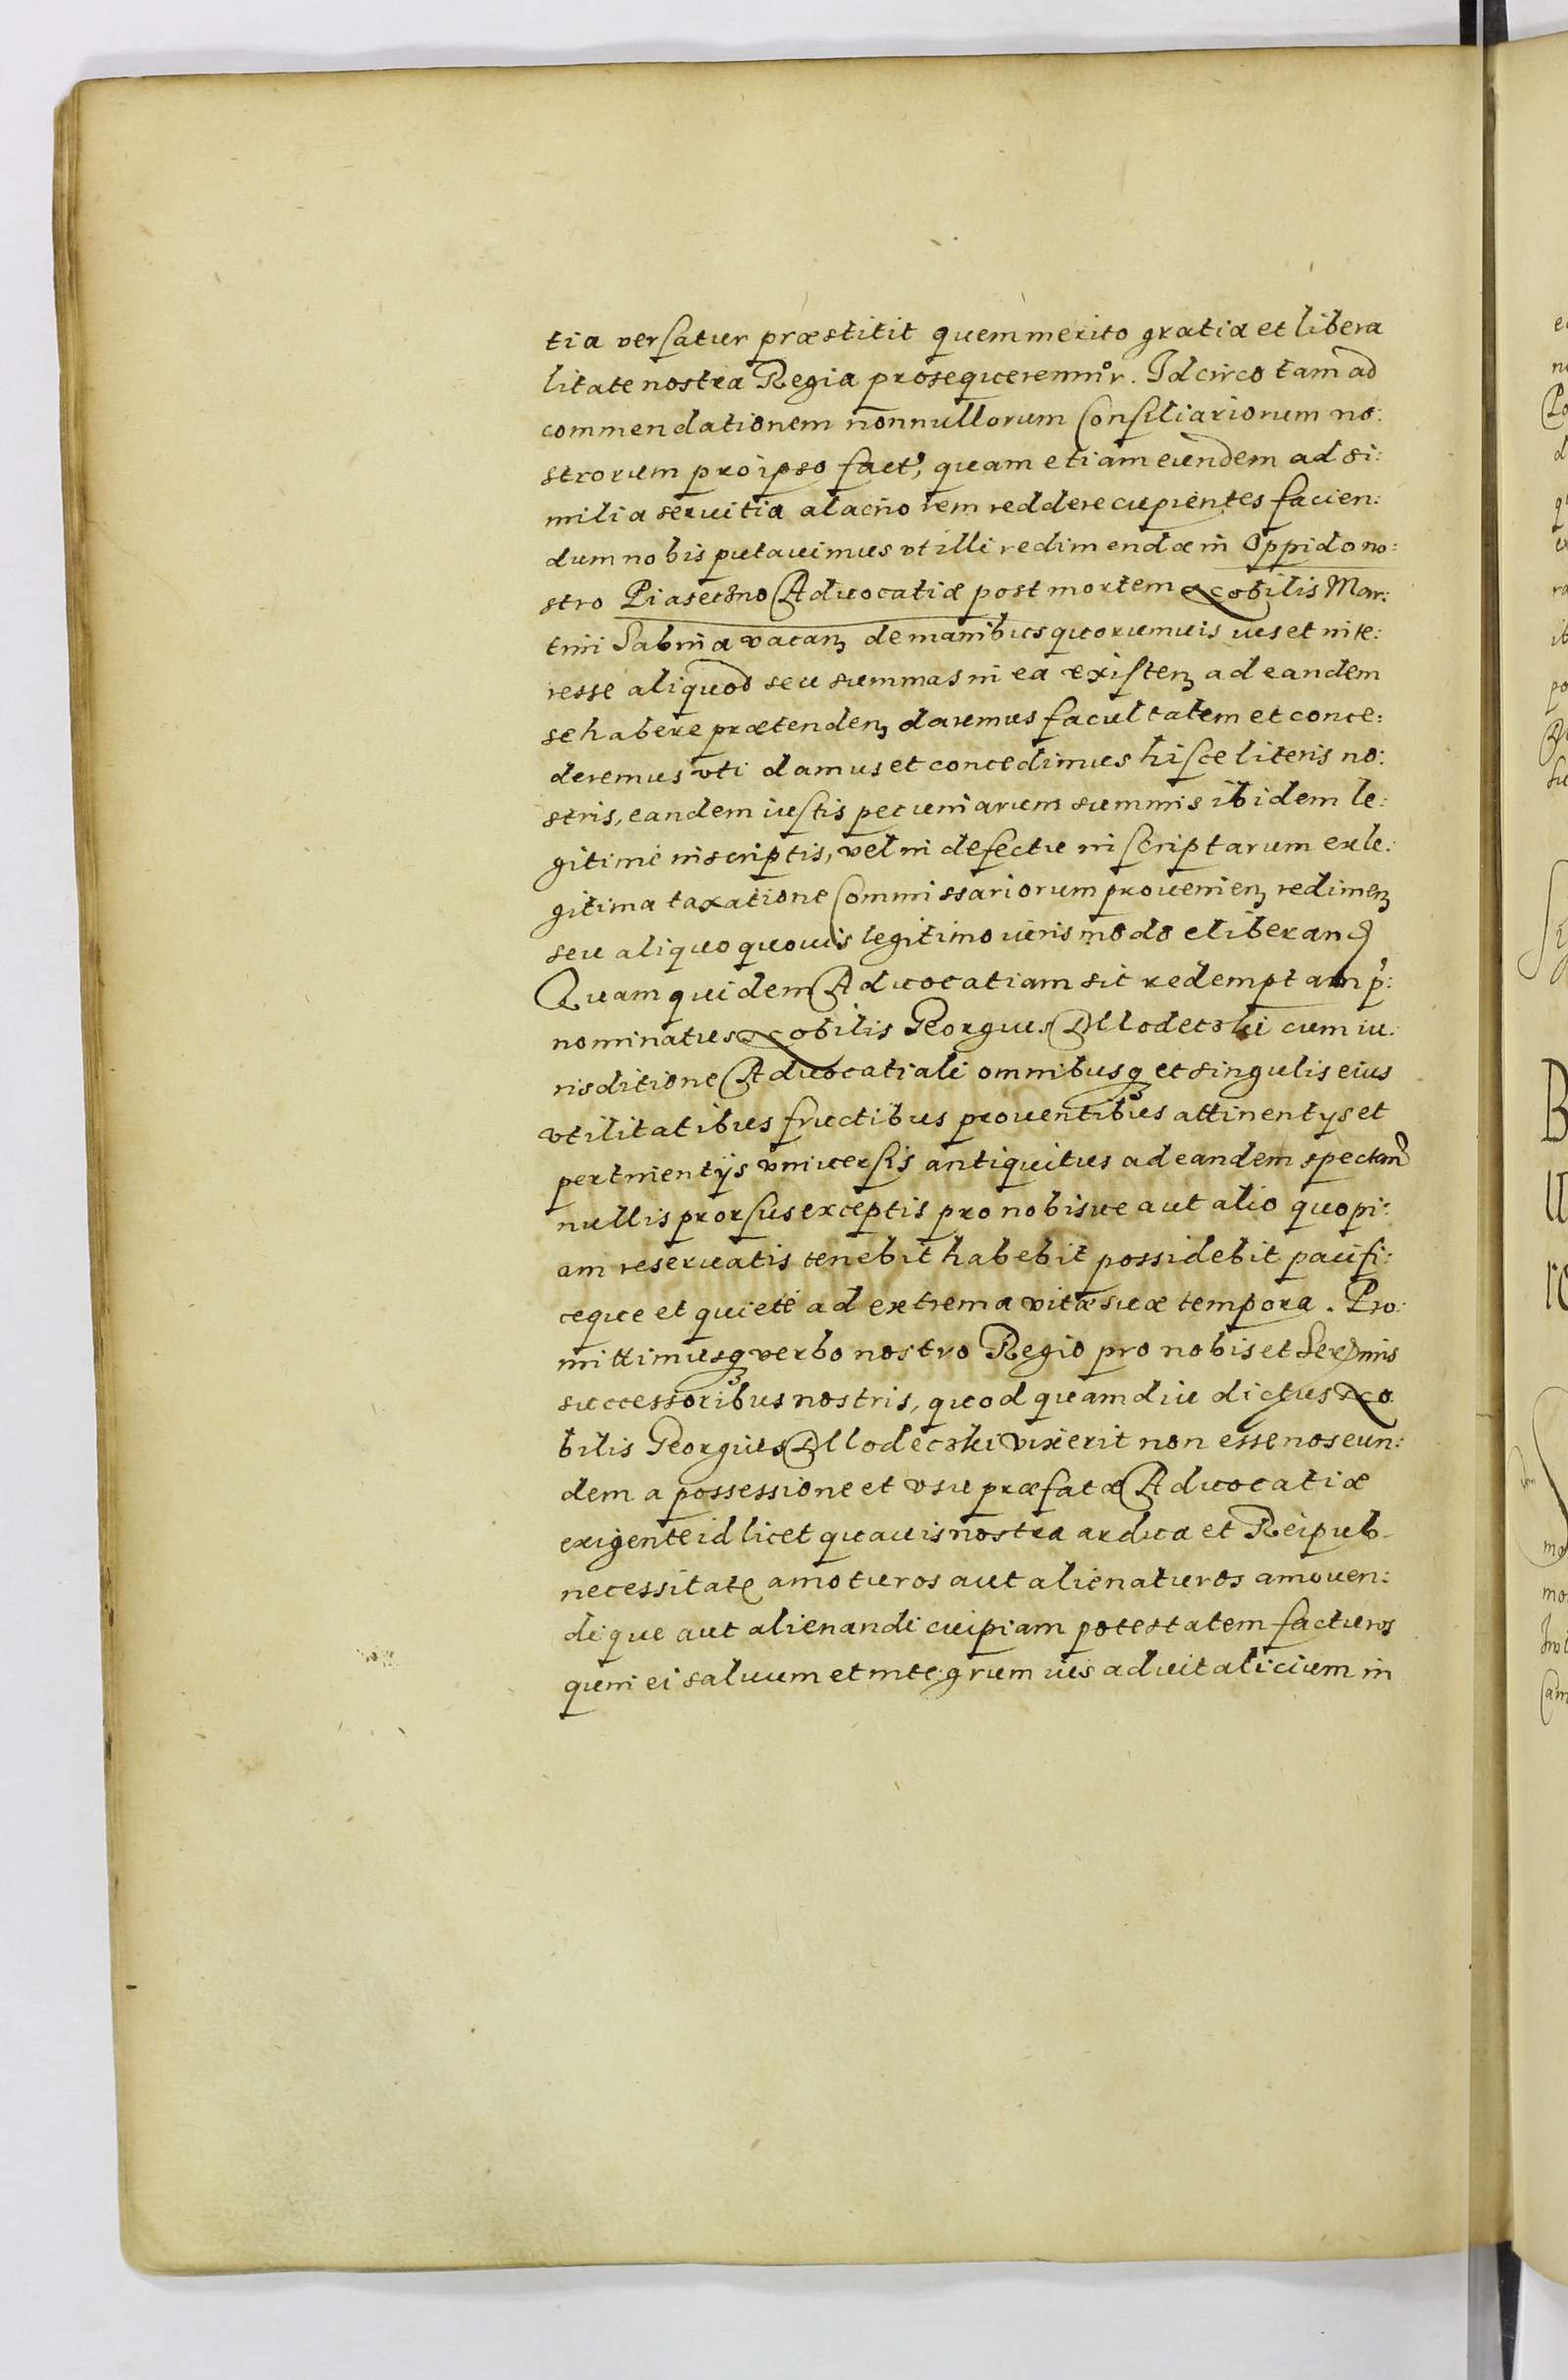 tia versatur præstitit quem merito gratia et libera
litate nostra Regia prosequeremur. Idcirco tam ad
commendationem nonnullorum Consiliariorum no:
strorum pro ipso fact, quam etiam eundem ad si:
milia seruitia alacriorem reddere cupientes facien:
dum nobis putauimus vt illi redimendæ in Oppido no:
stro Piaseczno Aduocatiæ post mortem Nobilis Mar:
tini Sabina vacan de manibus quorumuis ius et inte:
resse aliquod seu summas in ea existen ad eandem
se habere prætenden daremus facultatem et conce:
deremus vti damus et concedimus hisce literis no:
stris, eandem iustis pecuniarum summis ibidem le:
gitime inscriptis, vel in defectu inscriptarum ex le:
gitima taxatione Commissariorum prouenien redimen
seu aliquo quouis legitimo iuris modo eliberand
Quam quidem Aduocatiam sic redemptam p:
nominatus Nobilis Georgius Mlodecski cum iu:
risditione Aduocatiali omnibusq et singulis eius
vtilitatibus fructibus prouentibus attinentijs et
pertinentijs vniuersis antiquitus ad eandem spectan
nullis prorsus exceptis pro nobisue aut alio quopi:
am reseruatis tenebit habebit possidebit pacifi:
ceque et quietè ad extrema vitæ suæ tempora. Pro:
mittimusq verbo nostro Regio pro nobis et Serenmis
successoribus nostris, quod quamdiu dictus No
bilis Georgius Mlodecski vixerit non esse nos eun:
dem a possessione et vsu præfatæ Aduocatiæ
exigente id licet quauis nostra ardua et Reipub
necessitate amoturos aut alienaturos amouen:
dique aut alienandi cuipiam potestatem facturos
quin ei saluum et integrum ius aduitalicium in